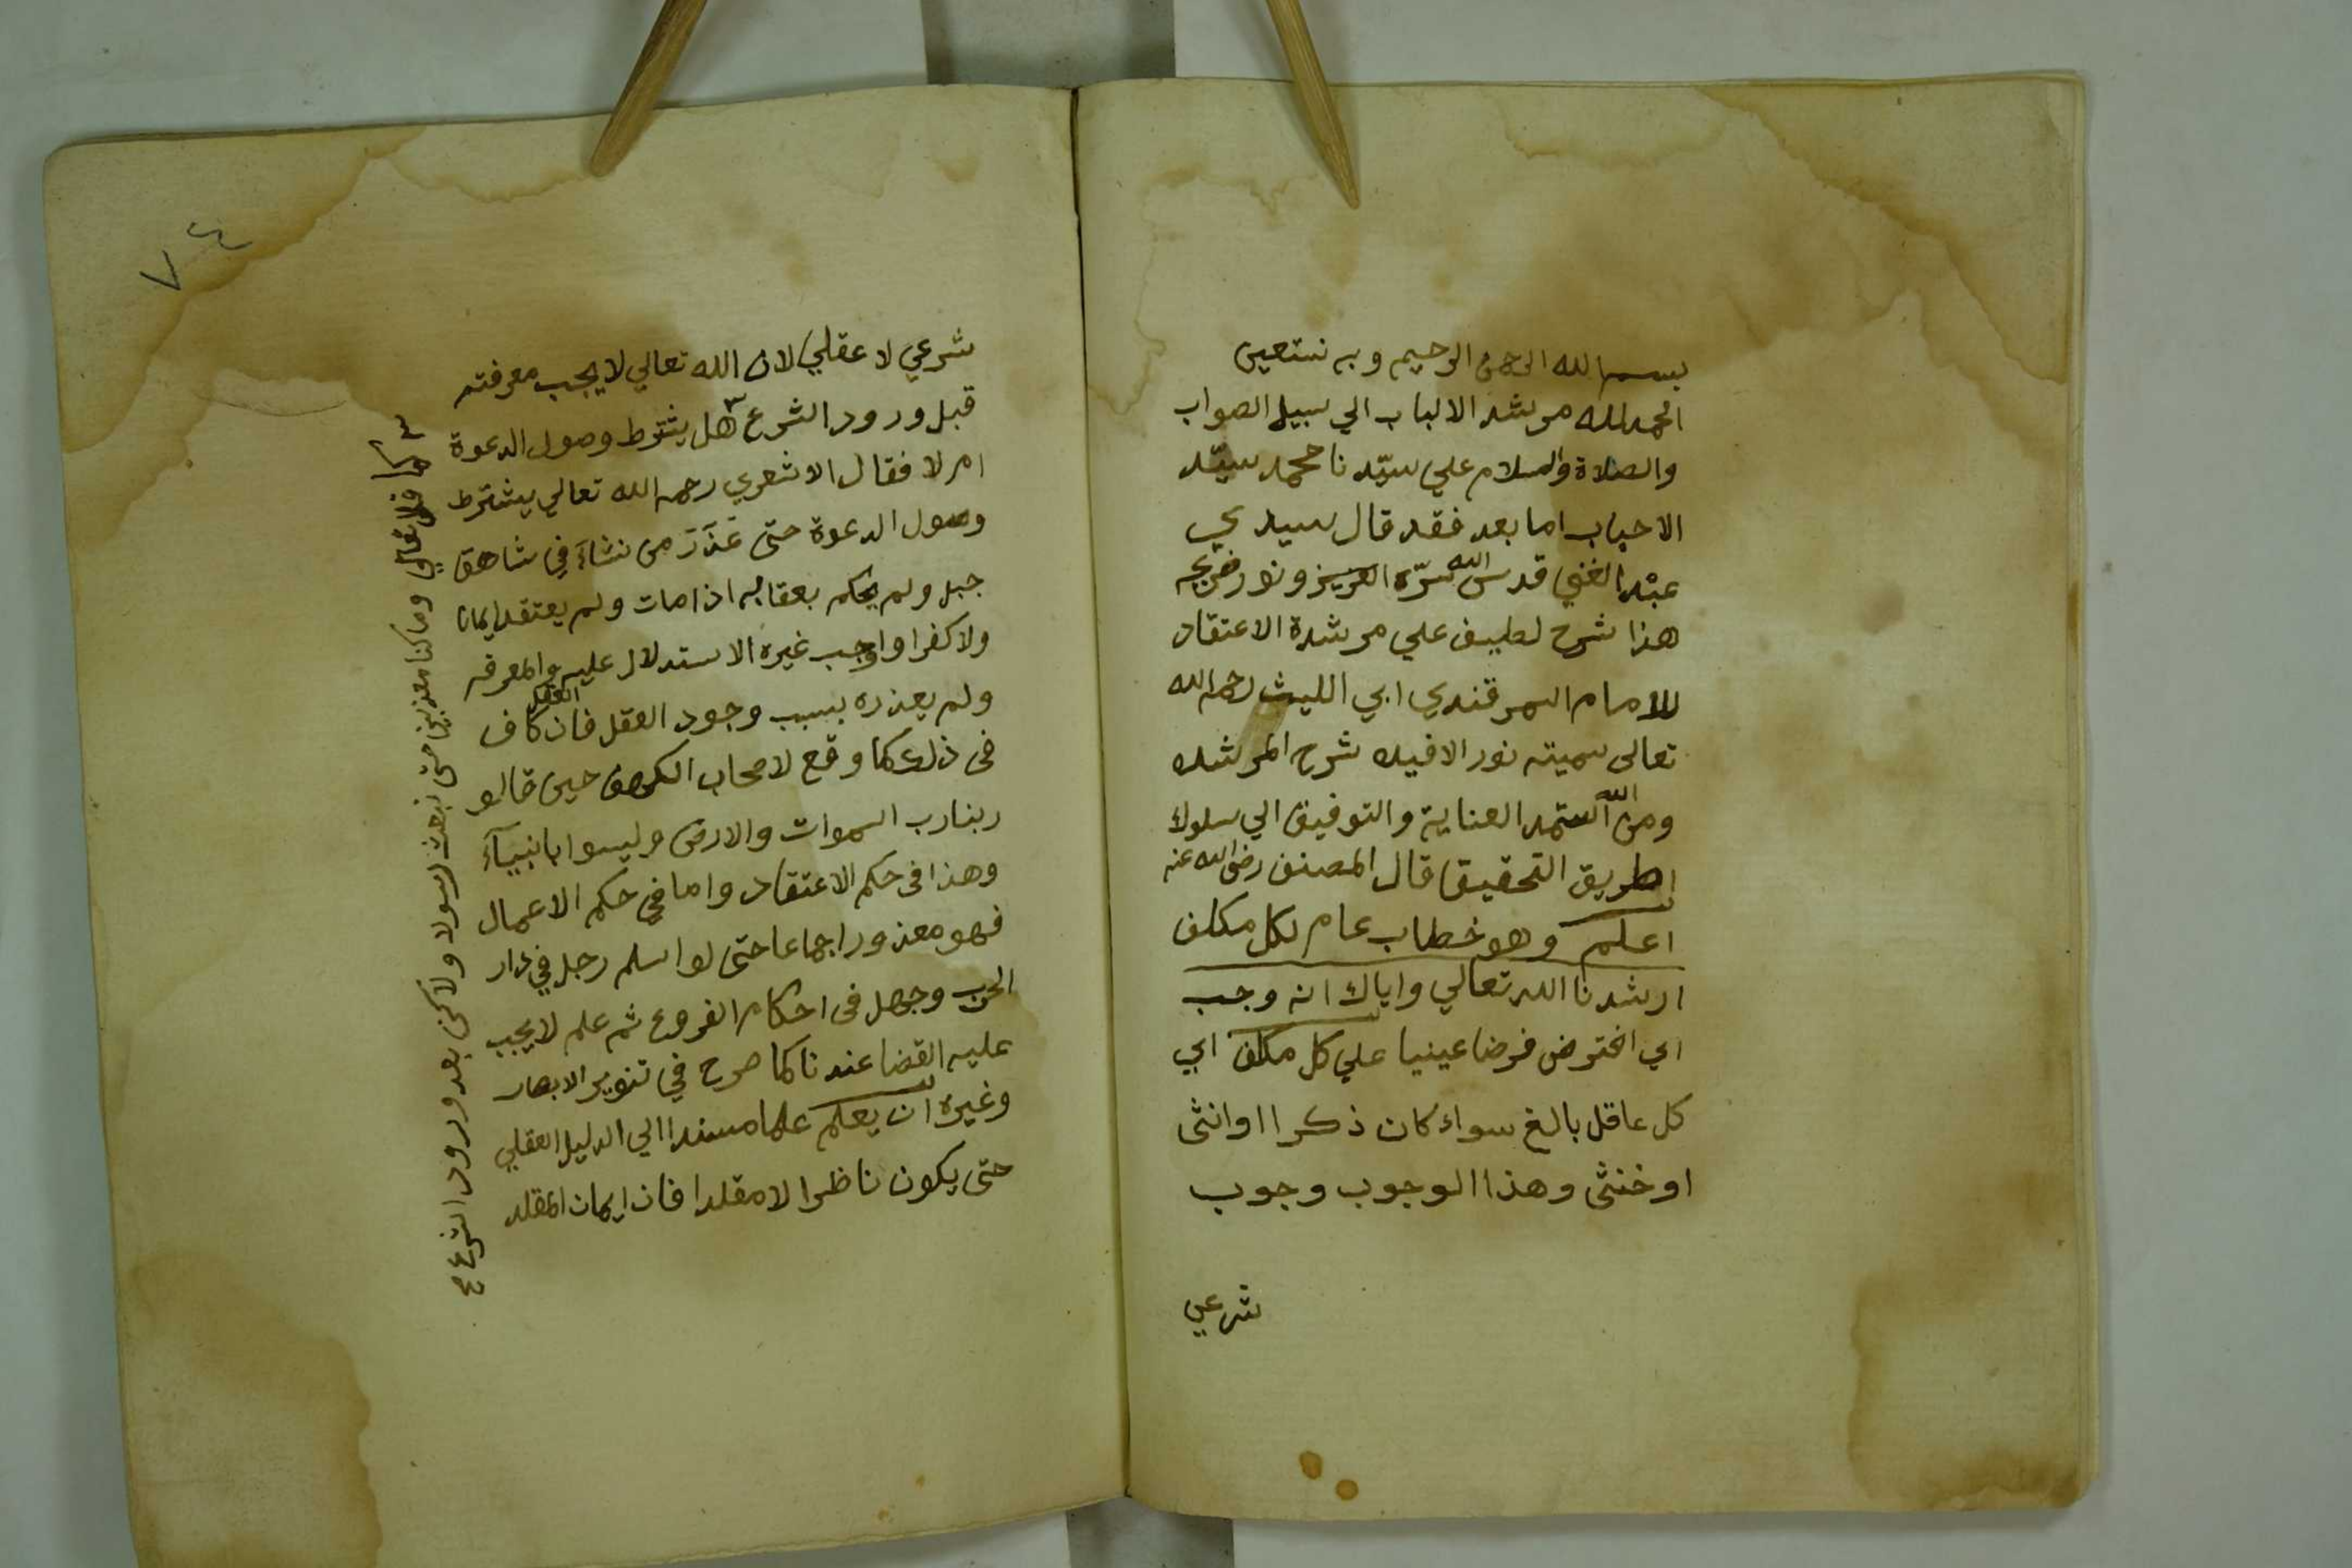 بسم الله الرحمن الرحيم وبه نستعين
الحمدلله مرشد الالباب الي سبيل الصواب
والصلاة والسلام علي سيّدنا محمد سيّد
الاحباب اما بعد فقد قال سيدي
عبْد الغني قدس الله سرّه العزيز ونور ضريحه
هذا شرح لطيف علي مرشدة الاعتقاد
للامام السمرقندي ابي الليث رحمه الله
تعالى سميته نور الافيده شرح المرشده
ومن الله استمد العناية والتوفيق الي سلوك
طريق التحقيق قال المصنف رضى الله عنه
اعلم وهو خطاب عام لكل مكلف
ارشدنا الله تعالي واياك انه وجب
اي افترض فرضا عينيا علي كل مكلف اي
كل عاقل بالغ سواء كان ذكرا اوانثى
اوخنثى وهذا الوجوب وجوب
شرعي
٧٤
شرعي لا عقلي لان الله تعالي لا يجب معرفته
قبل ورود الشرع ٣ هل يشترط وصول الدعوة
ام لا فقال الاشعري رحمه الله تعالي يشترط
وصول الدعوة حتى عَذَرَ من نشاءَ في شاهق
جبل ولم يحكم بعقابه اذا مات ولم يعتقد ايمانا
ولا كفرا واوجب غيره الاستدلال عليه والمعرفه
ولم يعذره بسبب وجود العقل فان العقل كاف
فى ذلك كما وقع لاصحاب الكهف حين قالو
ربنا رب السموات والارض وليسوا بانبيآءَ
وهذا فى حكم الاعتقاد واما في حكم الاعمال
فهو معذور اجماعا حتى لو اسلم رجل في دار
الحرب وجهل فى احكام الفروع ثم علم لا يجب
عليه القضا عندنا كما صرح في تنوير الابصار
وغيره ان يعلم علما مسندا الي الدليل العقلي
حتى يكون ناظرا لا مقلدا فان ايمان المقلد
٣ تعالي وما كنا معذبين حتى نبعث رسولا ولاكن بعد ورود الشرع